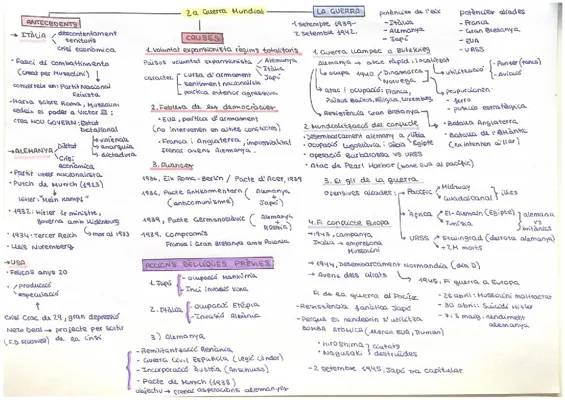 2a Guerra Mundial
ANTECEDENTS
→ ITÀLIA
descontentament
territoris
crisi econòmica
- Fasci di combattimento
(creat per Mussolini)
converteix en: Partit Nacional
Feixista
- Marxa sobre Roma, Mussolini
- crea NOU GOVERN: Estat
dictatorial
→ ALEMANYA
crisi
econòmica
violència
anarquia
dictadura
- Partit
- Putsch de Munich (1923)
Hitler: "Mein Kampf"
- 1932: Hitler 1r ministre,
Governa amb Hidenburg
- 1934: Tercer Reich
- Lleis Nuremberg
→ USA
- Feliços anys 20
↓ producció
↑ especulació
Crisi Crac de 29, gran depressió
New Deal → projecte per sortir
(F.D. Roosvelt) de la crisi
CAUSES
1. Voluntat expansionista règims totalitaris
Països voluntat expansionista
Alemanya
Itàlia
Japó
caracter.
cursa d'armament
sentiment nacionalista
política exterior agressiva
2. Feblesa de les democràcies
- EUA, política d'aïllament
(no intervenen en altres conflictes)
- França i Anglaterra, impassibilitat
enfront avenç Alemanya.
3. Aliances
1936, Eix Roma-Berlín / Pacte d'Acer, 1939
1936, Pacte Antikomintern
(anticomunisme)
Alemanya
↓
Japó
1939, Pacte Germanosoviètic
Alemanya
↓
Rússia
1939, Compromís
França i Gran Bretanya amb Polònia
ACCIONS BÈL·LIQUES PRÈVIES
1. Japó
- ocupació Manxúria
- Inici invasió Xina
2. Itàlia
- ocupació Etiòpia
- Invasió Albània
3) Alemanya
- Remilitarització Renània
- Guerra Civil Espanyola (Legió Còndor)
- Incorporació Àustria (Anschluss)
- Pacte de Munich (1938)
objectiu → frenar aspiracions alemanyes
LA GUERRA
1 setembre 1939-
potències de l'eix
- Itàlia
- Alemanya
- Japó
potències aliades
- França
- Gran Bretanya
- EUA
- URSS
1. Guerra llampec o Blitzkrieg
Alemanya → atac ràpid, localitzat
ocupa 1940
Dinamarca
Noruega
utilització
- Panzer (tancs)
- aviació
atac i ocupació: França,
Països Baixos, Bèlgica, Luxemburg
proporciona:
- ferro
- posició estratègica
Resistència Gran Bretanya → Batalla Anglaterra
- Batalla de l'Atlàntic
2. Mundialització del conflicte
- Desembarcament alemany a Líbia
- Ocupació Iugoslàvia i Grècia
- Operació Barbarroja VS URSS
- Atac de Pearl Harbor (base EUA al pacífic)
3. El gir de la guerra
Ofensives aliades:
Pacífic
Midway
Guadalcanal
illes
Àfrica
El-Alamein (Egipte)
Tunísia
alemanys
vs
britànics
URSS
Stalingrad (derrota alemanya)
+2M morts
4. Fi conflicte Europa
→ 1943, campanya
Itàlia →
Mussolini
→ 1944, Desembarcament Normandia (dia D)
→ Avenç dels aliats
→ 1945, Fi guerra a Europa
- 28 abril: Mussolini
- 30 abril: Suïcidi Hitler
- 7 i 8 maig: rendiment
alemanya
Fi de la guerra al Pacífic
- Resistència fanàtica Japó
- Perquè es rendeixin → utilització
bomba atòmica
- Hiroshima
- Nagasaki
ciutats
destruïdes
- 2 setembre 1945, Japó va capitular